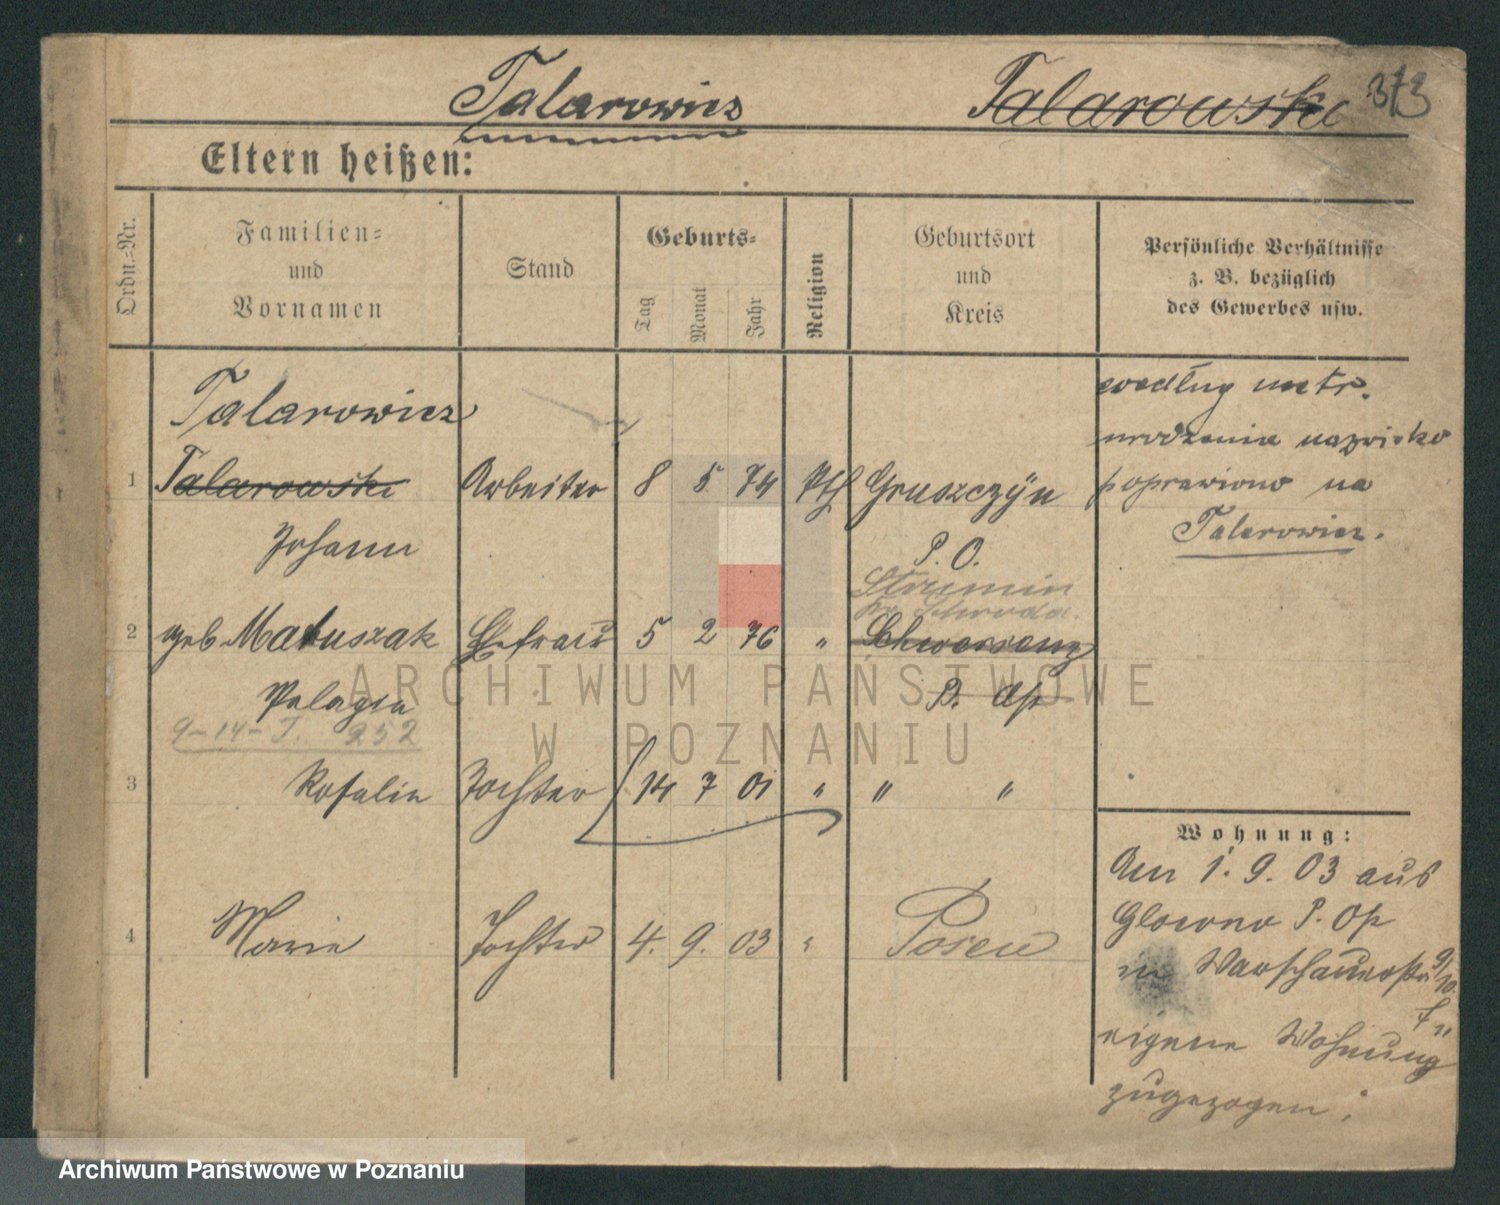 Talarowicz Talarowski 373
Eltern heißen:
Ordn.-Nr.
Familien-
und
Vornamen
Stand
Geburts-
Tag Monat Jahr
Religion
Geburtsort
und
Kreis
Persönliche Verhältnisse
z. B. bezüglich
des Gewerbes usw.
Talarowicz
1 Talarowski Arbeiter 8 5 74 kth Gruszczyn
Johann P. O.
według metr.
urodzenia nazwisko
poprawiono na
Talarowicz.
Kr. Schroda.
2 geb Matuszak Ehefrau 5 2 76 " Schwersenz
Pelagia P. Ost
9-14-I. 252
3 Rosalie Tochter 14 7 01 " " "
4 Marie Tochter 4. 9. 03 " Posen
Wohnung:
Am 1. 9. 03 aus
Glowno P. Ost
in Warschauerstr. 9/10.
eigene Wohnung
zugezogen;
ARCHIWUM PAŃSTWOWE
W POZNANIU
Archiwum Państwowe w Poznaniu